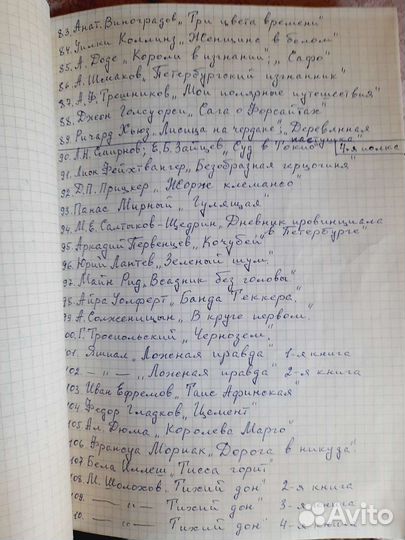 83. Анат. Виноградов „Три цвета времени"
84. Уилки Коллинз „Женщина в белом"
85. А. Доде „Короли в изгнании"; „Сафо"
86. А. Шмаков „Петербургский изгнанник"
87. А.Ф. Трешников „Мои полярные путешествия"
88. Джон Голсуорси „Сага о Форсайтах"
89. Ричард Хьюз „Лисица на чердаке"; „Деревянная пастушка"
90. Л.Н. Смирнов; Е.Б. Зайцев „Суд в Токио" 4-я полка
91. Лион Фейхтвангер „Безобразная герцогиня"
92. Д.П. Прицкер „Жорж Клемансо"
93. Панас Мирный „Гулящая"
94. М.Е. Салтыков-Щедрин „Дневник провинциала в Петербурге"
95. Аркадий Первенцев „Кочубей"
96. Юрий Лаптев „Зеленый шум"
97. Майн Рид „Всадник без головы"
98. Айра Уолферт „Банда Теккера"
99. А. Солженицын „В круге первом"
00. Г. Троепольский „Чернозем"
101. Яшпал „Ложная правда" 1-я книга
102. — " — „Ложеная правда" 2-я книга
103. Иван Ефремов „Таис Афинская"
104. Федор Гладков „Цемент"
105. Ал. Дюма „Королева Марго"
106. Франсуа Мориак „Дорога в никуда"
107. Бела Иллеш „Тисса горит"
108. М. Шолохов „Тихий дон" 2-я книга
109. — " — Тихий дон" 3-я книга
10. — " — Тихий дон" 4-я книга
Avito